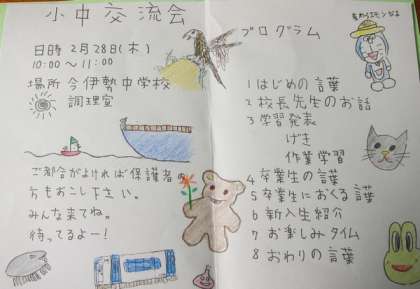 小中交流会
日時 2月28日(木)
10:00〜11:00
場所 今伊勢中学校
調理室
ご都合がよければ保護者の
方もおこし下さい。
みんな来てね。
待ってるよー!
プログラム
1 はじめの言葉
2 校長先生のお話
3 学習発表
げき
作業学習
4 卒業生の言葉
5 卒業生におくる言葉
6 新入生紹介
7 お楽しみタイム
8 おわりの言葉